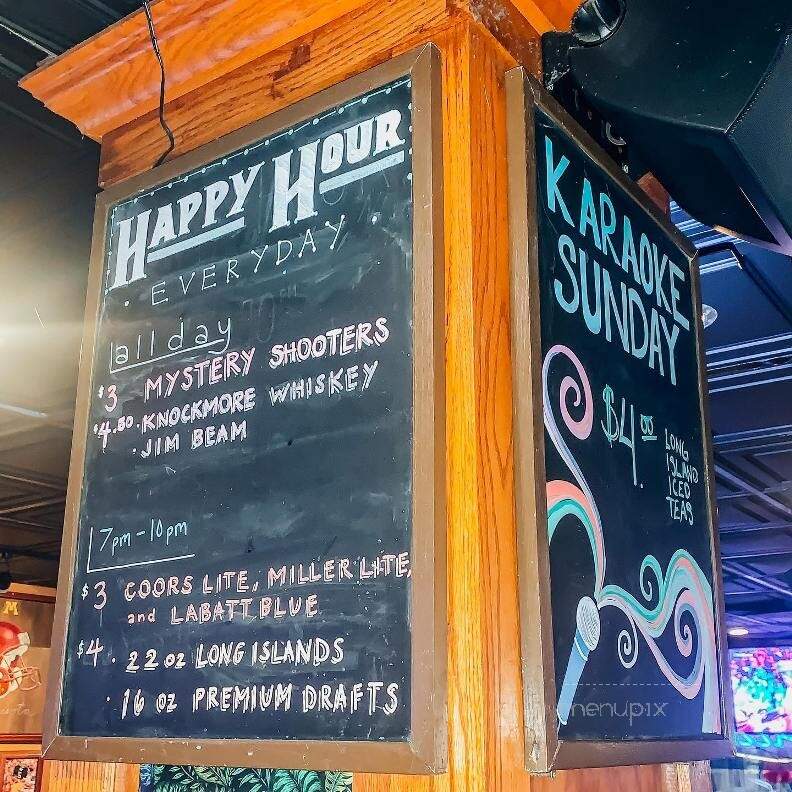 HAPPY HOUR
EVERYDAY
all day
$3 MYSTERY SHOOTERS
$4.50 · KNOCKMORE WHISKEY
· JIM BEAM
7pm - 10pm
$3 COORS LITE, MILLER LITE,
and LABATT BLUE
$4 · 22 oz LONG ISLANDS
· 16 oz PREMIUM DRAFTS
KARAOKE
SUNDAY
$4.00
LONG
ISLAND
ICED
TEAS
menupix